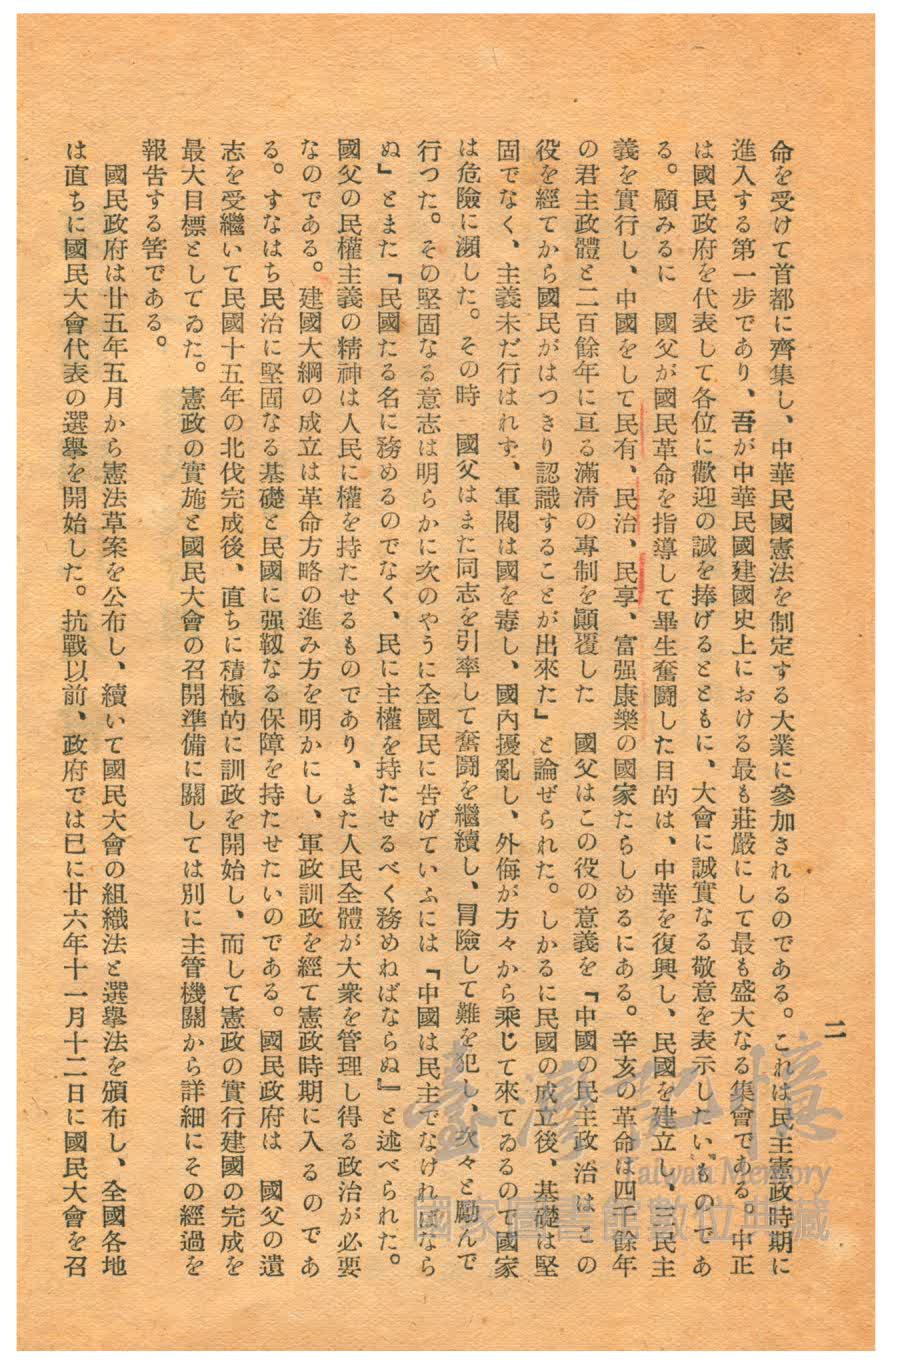 二
命を受けて首都に齊集し、中華民國憲法を制定する大業に參加されるのである。これは民主憲政時期に
進入する第一步であり、吾が中華民國建國史上における最も莊嚴にして最も盛大なる集會である。中正
は國民政府を代表して各位に歡迎の誠を捧げるとともに、大會に誠實なる敬意を表示したいものであ
る。顧みるに　國父が國民革命を指導して畢生奮鬪した目的は、中華を復興し、民國を建立し、三民主
義を實行し、中國をして民有、民治、民享、富强康樂の國家たらしめるにある。辛亥の革命は四千餘年
の君主政體と二百餘年に亘る滿淸の專制を顚覆した　國父はこの役の意義を「中國の民主政治はこの
役を經てから國民がはつきり認識することが出來た」と論ぜられた。しかるに民國の成立後、基礎は堅
固でなく、主義未だ行はれず、軍閥は國を毒し、國內擾亂し、外侮が方々から乘じて來てゐるので國家
は危險に瀕した。その時　國父はまた同志を引率して奮鬪を繼續し、冒險して難を犯し、次々と勵んで
行つた。その堅固なる意志は明らかに次のやうに全國民に告げていふには「中國は民主でなければなら
ぬ」とまた「民國たる名に務めるのでなく、民に主權を持たせるべく務めねばならぬ」と述べられた。
國父の民權主義の精神は人民に權を持たせるものであり、また人民全體が大衆を管理し得る政治が必要
なのである。建國大綱の成立は革命方略の進み方を明かにし、軍政訓政を經て憲政時期に入るのであ
る。すなはち民治に堅固なる基礎と民國に强靱なる保障を持たせたいのである。國民政府は　國父の遺
志を受繼いて民國十五年の北伐完成後、直ちに積極的に訓政を開始し、而して憲政の實行建國の完成を
最大目標としてゐた。憲政の實施と國民大會の召開準備に關しては別に主管機關から詳細にその經過を
報告する筈である。
國民政府は廿五年五月から憲法草案を公布し、續いて國民大會の組織法と選擧法を頒布し、全國各地
は直ちに國民大會代表の選擧を開始した。抗戰以前、政府では已に廿六年十一月十二日に國民大會を召
臺灣記憶
Taiwan Memory
國家圖書館數位典藏